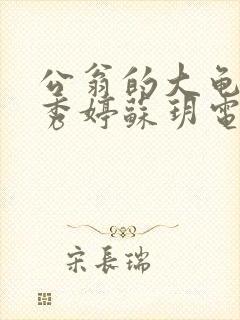 公翁的大龟
秀婷蘇玥電
宋長瑞